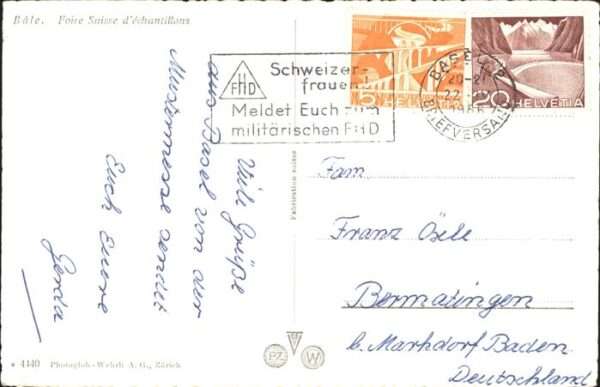 Bâle. Foire Suisse d'échantillons
FHD
Schweizer-
frauen
Meldet Euch zum
militärischen FHD
5 HELVETIA
20 HELVETIA
BASEL 2
BRIEFVERSAND
Viele Grüße
aus Basel von der
Mustermesse sendet
Euch Eure
Gerda
Fabrication suisse
Fam.
FranzÖsle
Bermatingen
b. Markdorf Baden
Deutschland
4440 Photoglob-Wehrli A. G., Zürich
PZ W